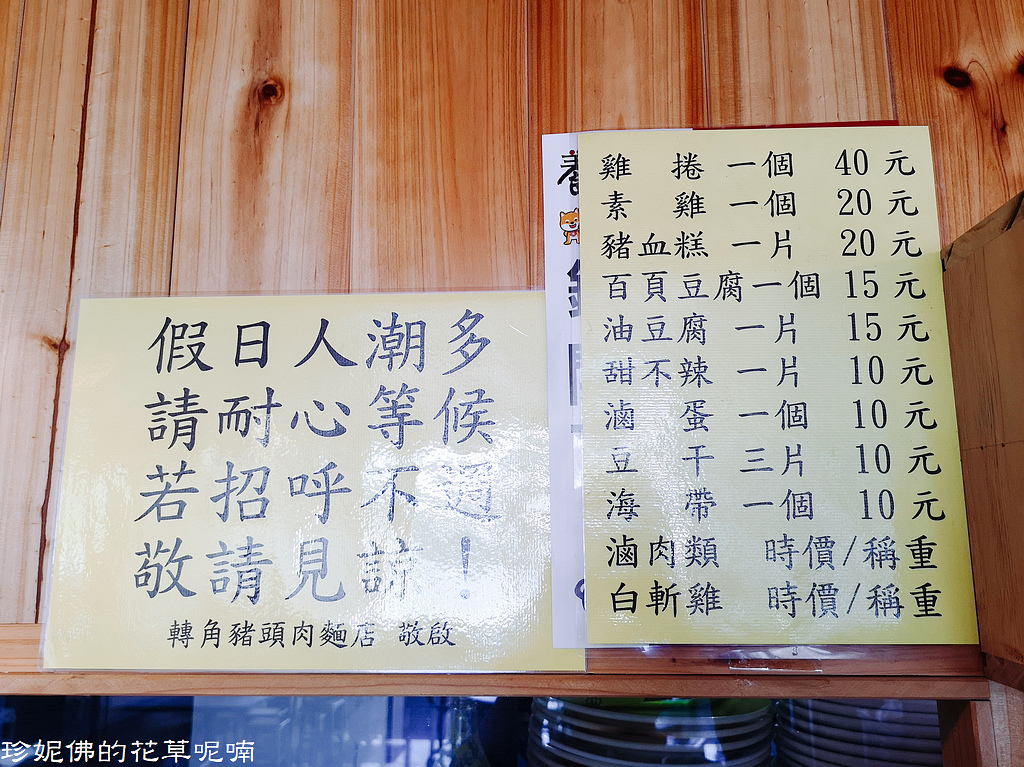 假日人潮多
請耐心等候
若招呼不週
敬請見諒！
轉角豬頭肉麵店 敬啟
雞捲一個 40元
素雞一個 20元
豬血糕一片 20元
百頁豆腐一個 15元
油豆腐一片 15元
甜不辣一片 10元
滷蛋一個 10元
豆干三片 10元
海帶一個 10元
滷肉類 時價/稱重
白斬雞 時價/稱重
珍妮佛的花草呢喃